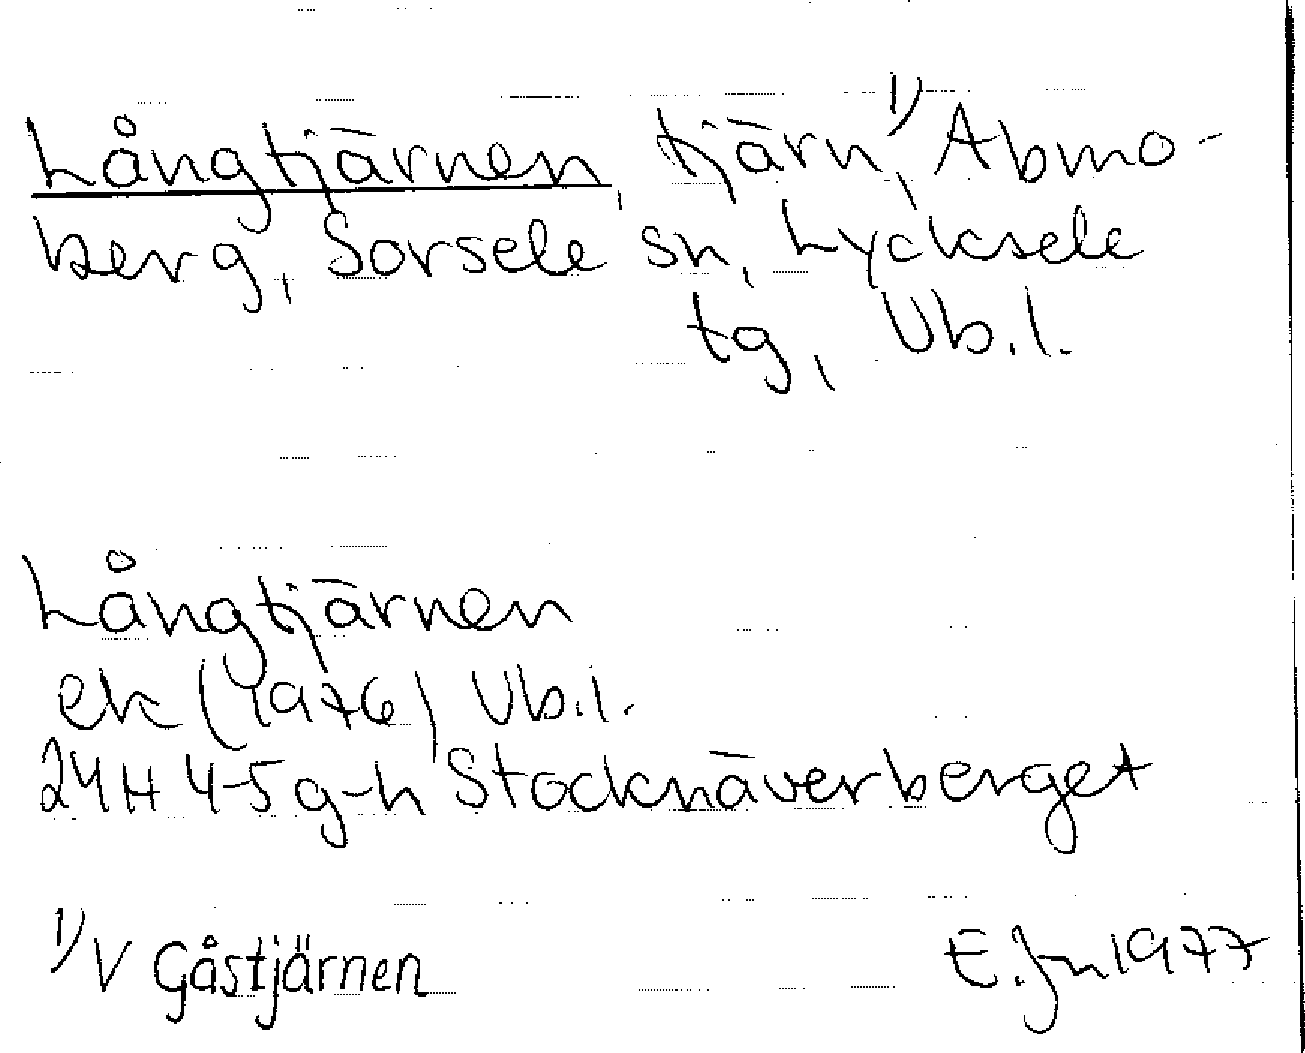 Långtjärnen, tjärn, 1) Abmo-
berg, Sorsele sn, Lycksele
tg, Vb.l.
Långtjärnen
ek (1976) Vb.l.
24H 4-5 g-h Stocknäverberget
1) V Gåstjärnen E.Jn 1977